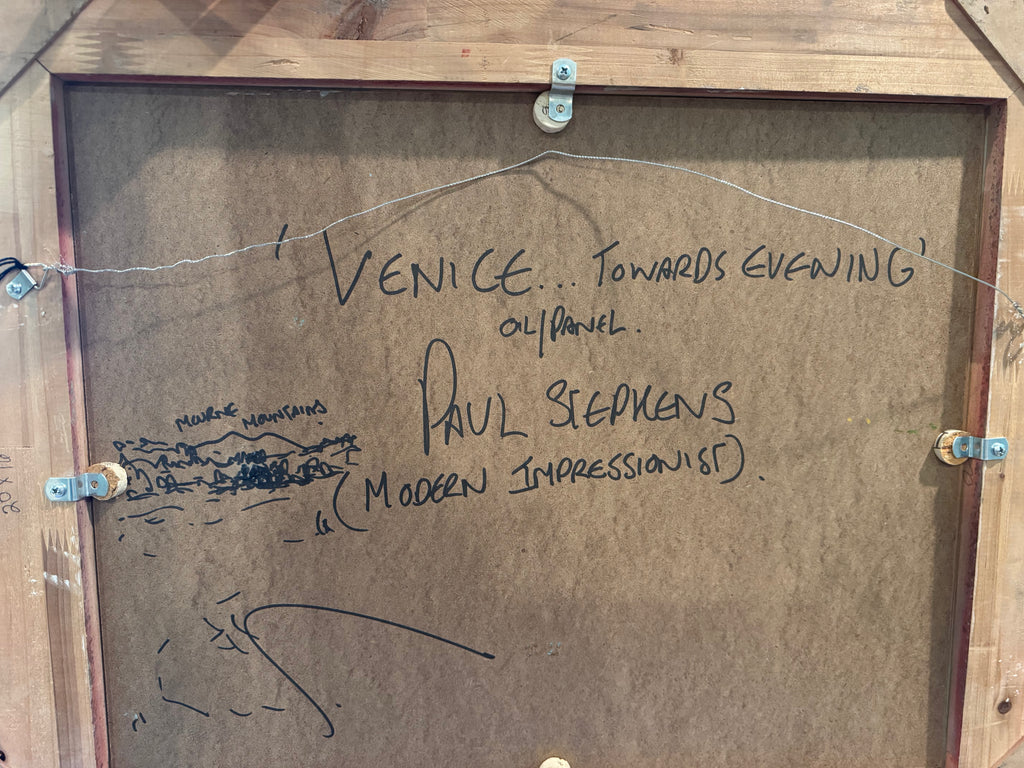 'VENICE... TOWARDS EVENING'
OIL/PANEL.
PAUL STEPHENS
(MODERN IMPRESSIONIST).
MOURNE MOUNTAINS